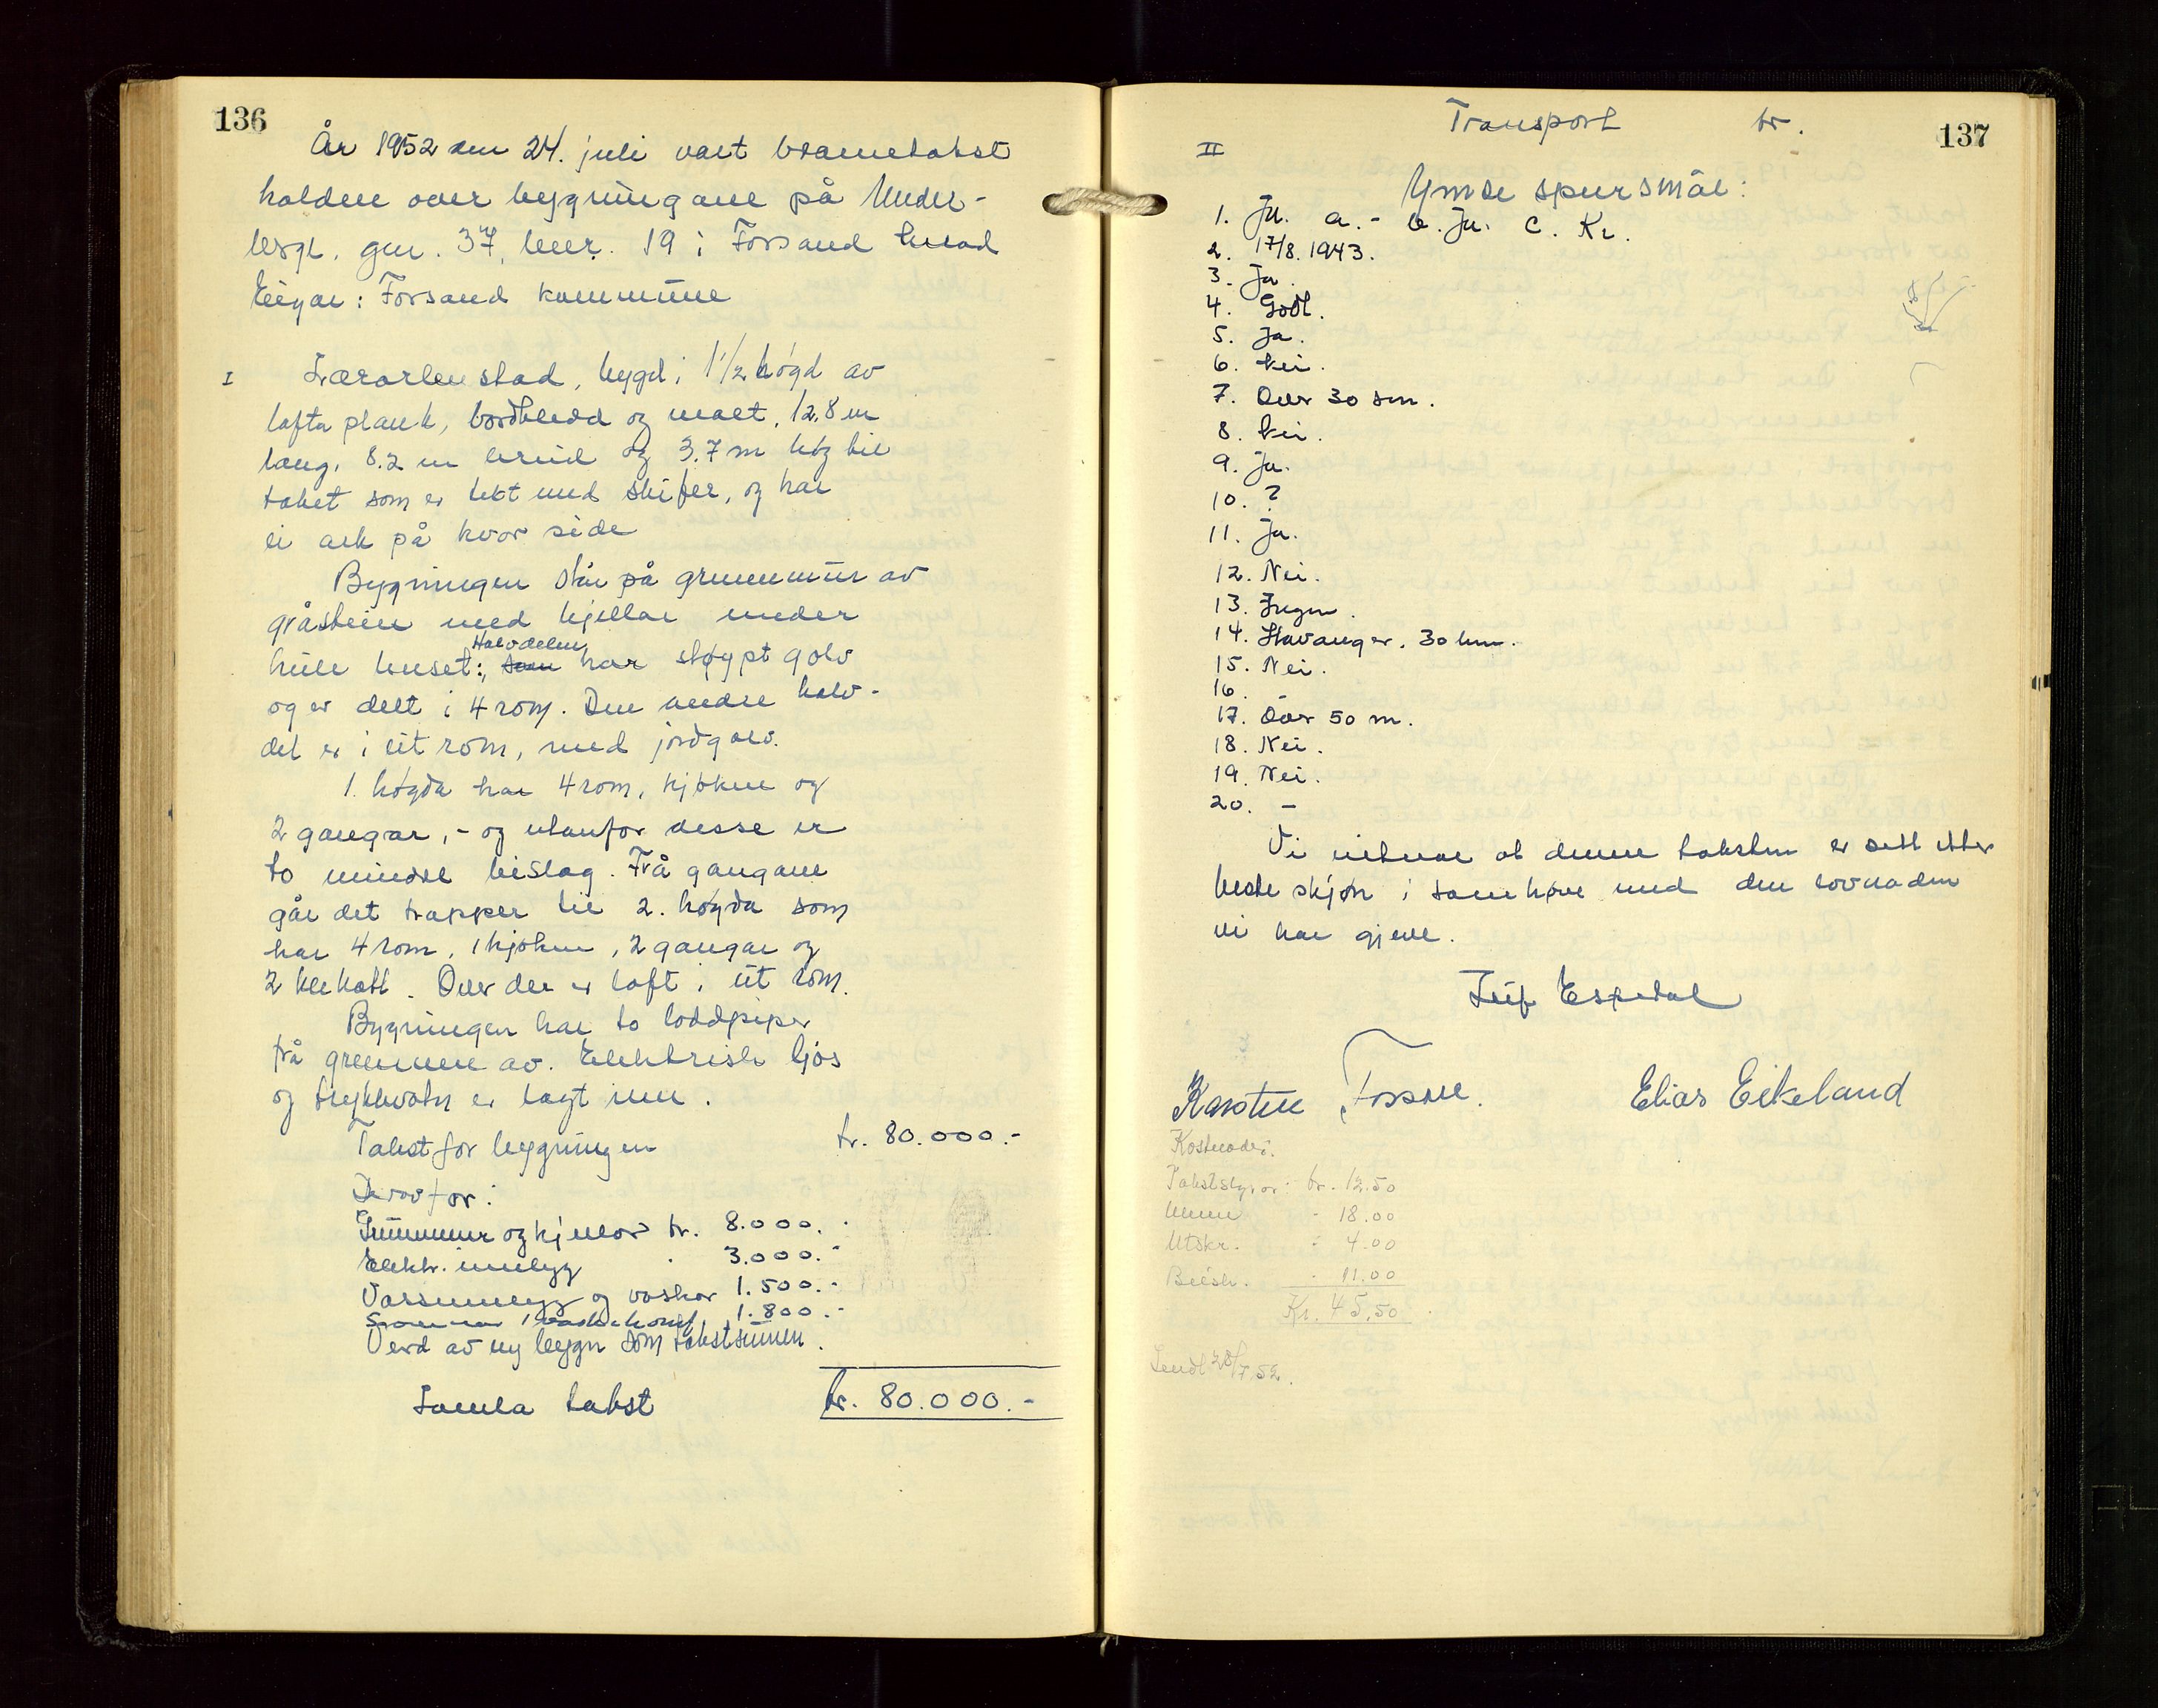 136
År 1952 den 24. juli vart brannetakst
halden over bygningane på Under-
bergt. gnr. 37, bnr. 19 i Forsand herad
Eigar: Forsand kommune
I Lærarbustad, bygd i 1 1/2 høgd av
lafta plank, bordkledd og malt, 12,8 m
lang, 8.2 m breid og 3.7 m høg til
taket som er tekt med skifer, og har
ei ark på kvar side
Bygningen står på grunnmur av
gråstein med kjellar under
Halvdelen
heile huset; som har støypt golv
og er delt i 4 rom. Den andre halv-
del er i eit rom, med jordgolv.
1. høgda har 4 rom, kjøken og
2 gangar, - og utanfor desse er
to mindre bislag. Frå gangane
går det trapper til 2. høgda som
har 4 rom, 1 kjøken, 2 gangar og
2 klekott. Over der er loft i eit rom.
Bygningen har to loddpiper
frå grunnen av. Elektrisk ljos
og trykkvatn er lagt inn.
Takst for bygningen kr. 80.000.-
Derav for:
Grunnmur og kjellar kr. 8.000.-
Elektr. innlegg 3.000.-
Vassinnlegg og vaskar 1.500.-
1.800.-
Verd av ny bygn som takstsummen.
Samla takst kr. 80.000.-
Transport kr.
137
II
Ymse spursmål:
1. Ja. a. - b. Ja. c. Kr.
2. 17/8. 1943.
3. Ja.
4. Godt.
5. Ja.
6. Nei.
7. Over 30 sm.
8. Nei.
9. Ja.
10. ?
11. Ja.
12. Nei.
13. Ingen.
14. Stavanger. 30 km.
15. Nei.
16.
17. Over 50 m.
18. Nei.
19. Nei.
20. -
Vi vitnar at denne taksten er sett etter
beste skjøn i samhøve med den lovnaden
vi har gjeve.
Leif Espedal
Karsten Fossan.
Elias Eikeland
Kostnader:
Takststyrar: kr. 12.50
Menn - 18.00
Utskr. - 4.00
Bilsk. - 11.00
Kr. 45,50
Sendt 28/7 52.